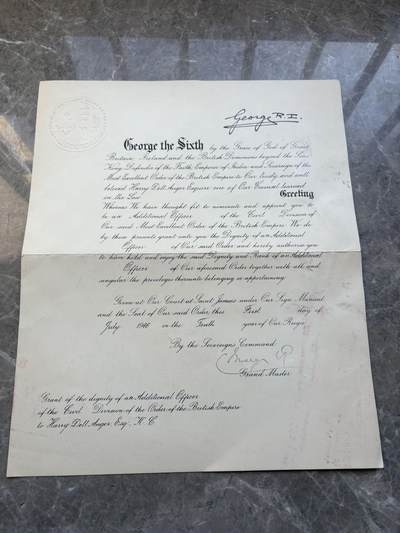 George R.I.
George the Sixth by the Grace of God of Great
Britain Ireland and the British Dominions beyond the Seas
King, Defender of the Faith, Emperor of India and Sovereign of the
Most Excellent Order of the British Empire to Our trusty and well
beloved Harry Dell Auger Esquire one of Our Counsel learned
in the Law Greeting
Whereas We have thought fit to nominate and appoint you to
be an Additional Officer of the Civil Division of
Our said Most Excellent Order of the British Empire We do
by these presents grant unto you the Dignity of an Additional
Officer of Our said Order and hereby authorise you
to have hold and enjoy the said Dignity and Rank of an Additional
Officer of Our aforesaid Order together with all and
singular the privileges thereunto belonging or appertaining.
Given at Our Court at Saint James's under Our Sign Manual
and the Seal of Our said Order this First day of
July 1946 in the Tenth year of Our Reign
By the Sovereign's Command
Grand Master
Grant of the dignity of an Additional Officer
of the Civil Division of the Order of the British Empire
to Harry Dell Auger, Esq., K.C.